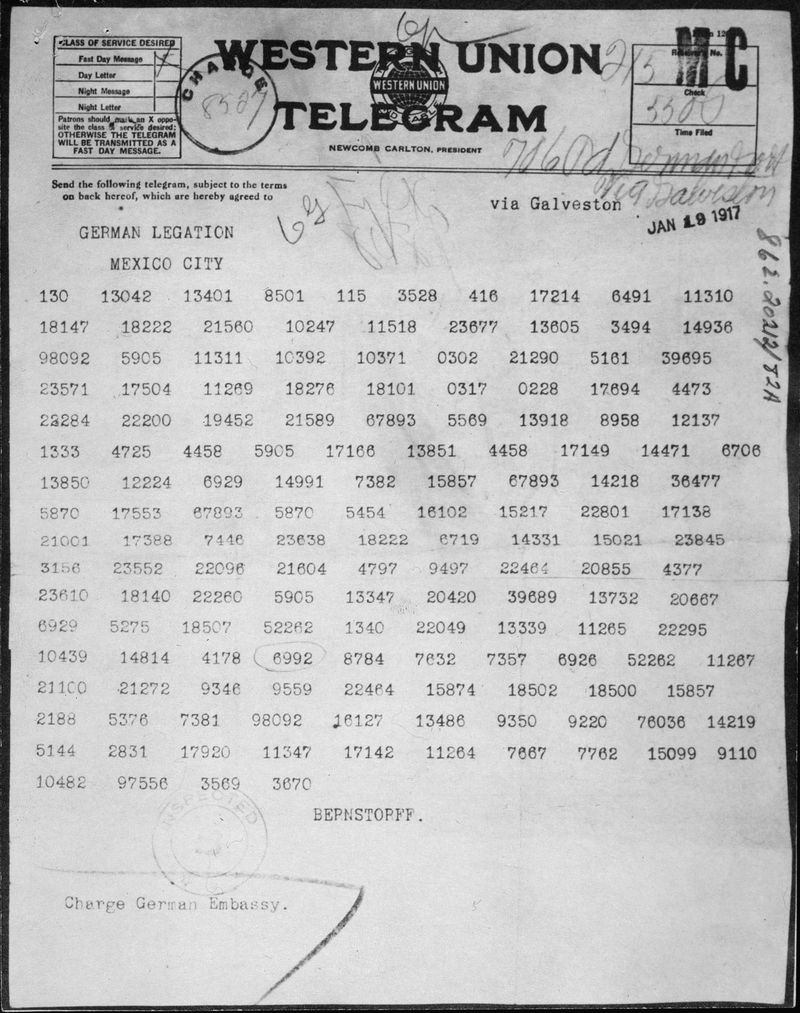 CLASS OF SERVICE DESIRED
Fast Day Message
Day Letter
Night Message
Night Letter
Patrons should mark an X oppo-
site the class of service desired:
OTHERWISE THE TELEGRAM
WILL BE TRANSMITTED AS A
FAST DAY MESSAGE.
CHARGE
WESTERN UNION
WESTERN UNION
TELEGRAM
NEWCOMB CARLTON, PRESIDENT
MC
Receiver's No.
Check
Time Filed
Send the following telegram, subject to the terms
on back hereof, which are hereby agreed to
via Galveston
Via Galveston
JAN 19 1917
GERMAN LEGATION
MEXICO CITY
130 13042 13401 8501 115 3528 416 17214 6491 11310
18147 18222 21560 10247 11518 23677 13605 3494 14936
98092 5905 11311 10392 10371 0302 21290 5161 39695
23571 17504 11269 18276 18101 0317 0228 17694 4473
22284 22200 19452 21589 67893 5569 13918 8958 12137
1333 4725 4458 5905 17166 13851 4458 17149 14471 6706
13850 12224 6929 14991 7382 15857 67893 14218 36477
5870 17553 67893 5870 5454 16102 15217 22801 17138
21001 17388 7446 23638 18222 6719 14331 15021 23845
3156 23552 22096 21604 4797 9497 22464 20855 4377
23610 18140 22260 5905 13347 20420 39689 13732 20667
6929 5275 18507 52262 1340 22049 13339 11265 22295
10439 14814 4178 6992 8784 7632 7357 6926 52262 11267
21100 21272 9346 9559 22464 15874 18502 18500 15857
2188 5376 7381 98092 16127 13486 9350 9220 76036 14219
5144 2831 17920 11347 17142 11264 7667 7762 15099 9110
10482 97556 3569 3670
BERNSTORFF.
INSPECTED
Charge German Embassy.
862.20212/82A